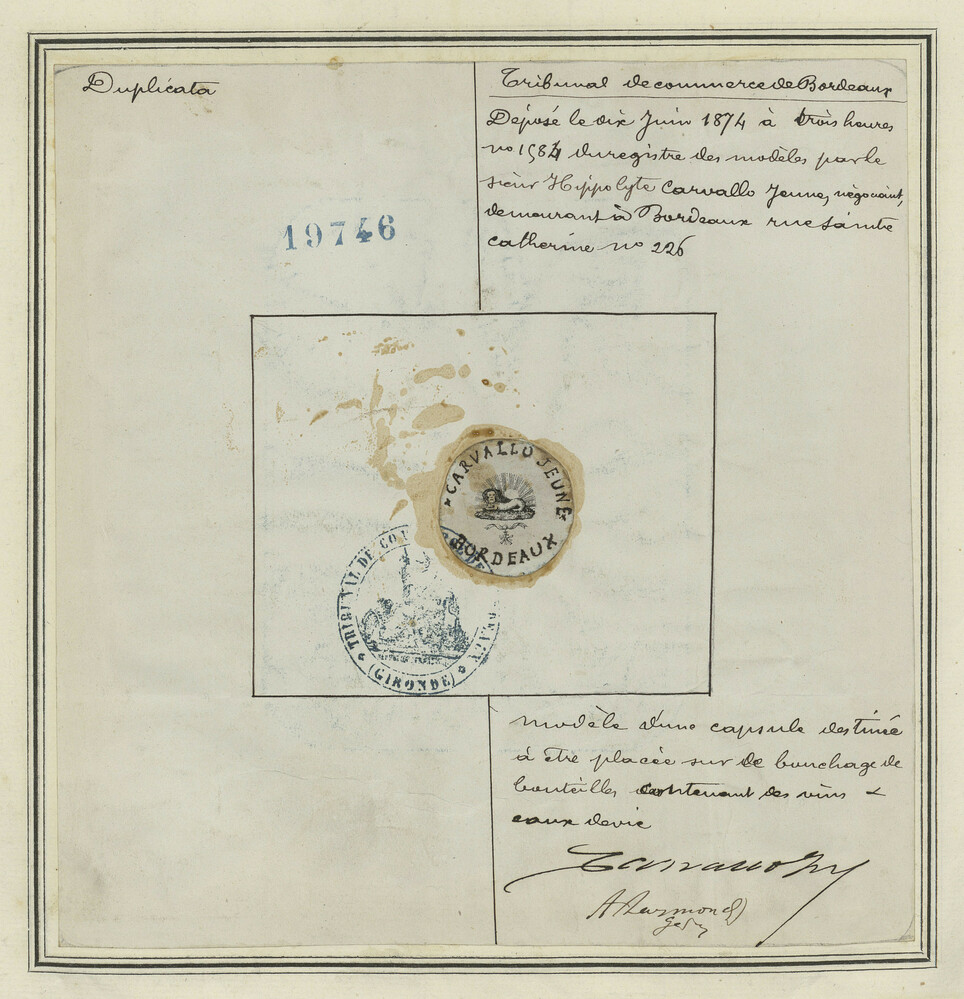 Duplicata
Tribunal de commerce de Bordeaux
Déposé le dix Juin 1874 à trois heures
no 1584 du registre des modèles par le
sieur Hippolyte Carvallo Jeune, négociant,
demeurant à Bordeaux rue Sainte
Catherine no 226
19746
CARVALLO JEUNE
BORDEAUX
TRIBUNAL DE COM
(GIRONDE)
modèle d'une capsule destinée
à être placée sur le bouchage de
bouteilles contenant des vins &
eaux de vie
Carvallo Jne
A Raymond